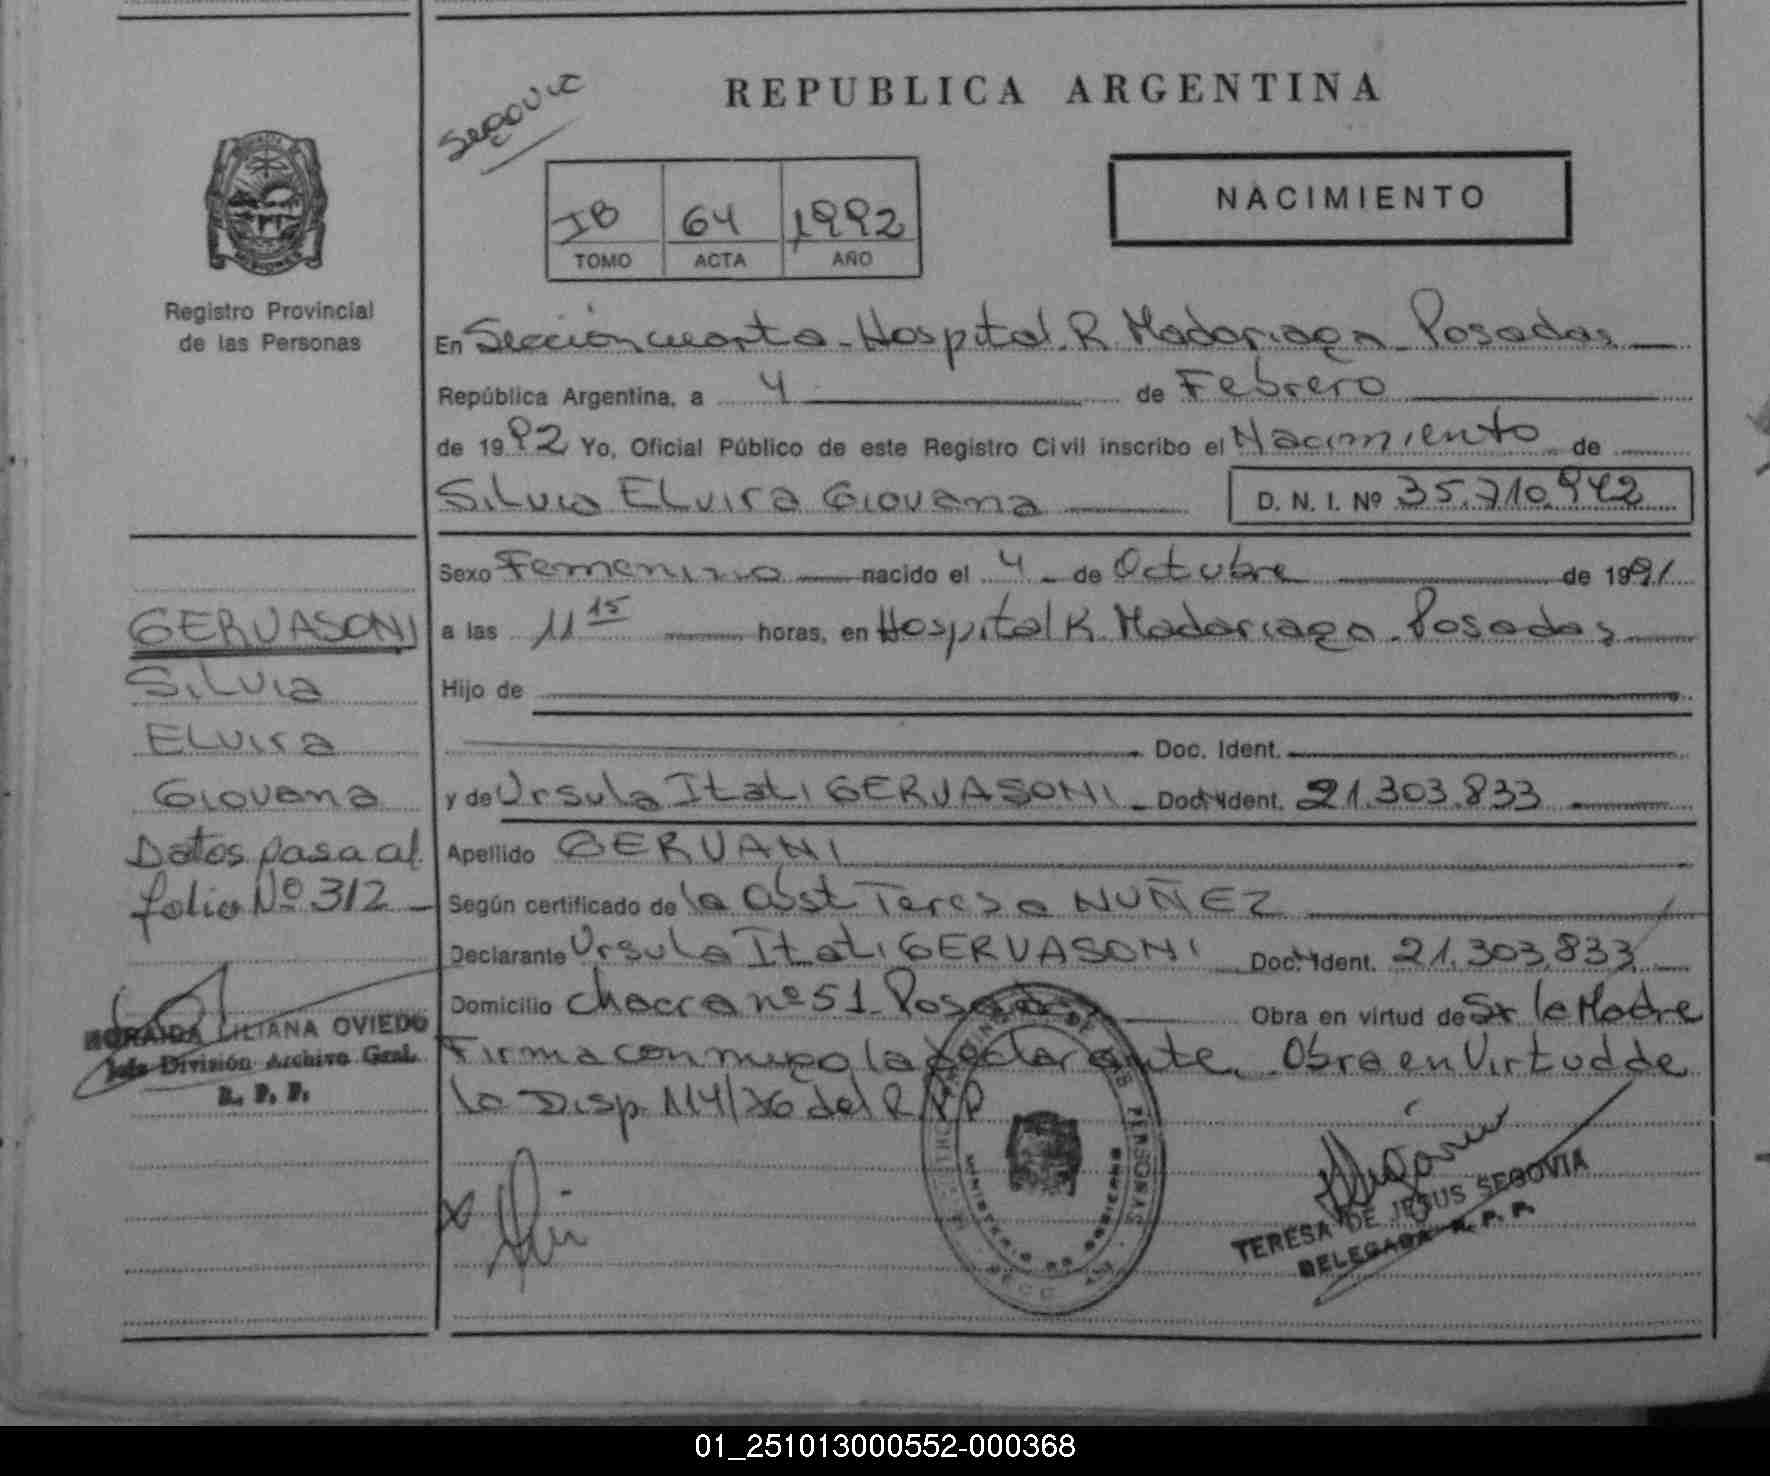 REPUBLICA ARGENTINA
Segovia
NACIMIENTO
IB 64 1992
TOMO ACTA AÑO
Registro Provincial
de las Personas
En Sección cuarta - Hospital R. Madariaga - Posadas
República Argentina, a 4 de Febrero
de 1992 Yo, Oficial Público de este Registro Civil inscribo el Nacimiento de
Silvia Elvira Giovana D. N. I. Nº 35.710.942
Sexo Femenino nacido el 4 de Octubre de 1991
a las 11 15 horas, en Hospital R. Madariaga - Posadas
Hijo de
Doc. Ident.
y de Ursula Itati GERVASONI - Doc. Ident. 21.303.833
Apellido GERVANI
Según certificado de la Obst Teresa NUÑEZ
Declarante Ursula Itati GERVASONI Doc. Ident. 21.303.833
Domicilio chacra nº 51 Posadas Obra en virtud de Sr la Madre
Firma conmigo la declarante. Obra en Virtud de
la Disp. 114/76 del R.P.P
GERVASONI
Silvia
Elvira
Giovana
Datos pasa al
folio Nº 312
LILIANA OVIEDO
Jefe División Archivo Gral.
R. P. P.
MINISTERIO DE GOBIERNO
TERESA DE JESUS SEGOVIA
DELEGADA R. P. P.
01_251013000552-000368